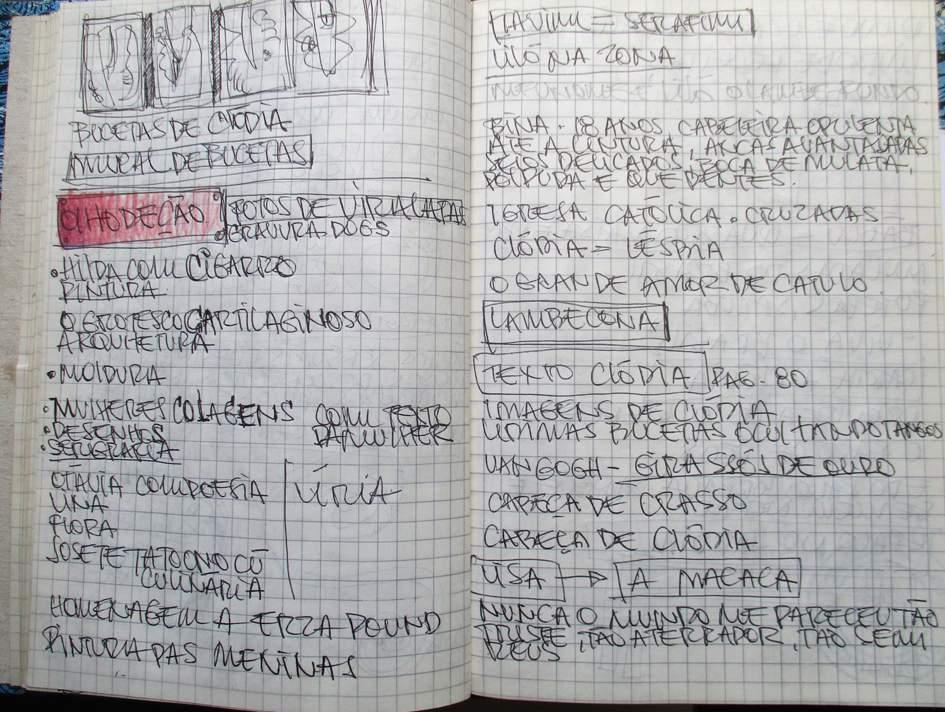 BUCETAS DE CLÓDIA
MURAL DE BUCETAS
OLHO DE CÃO
FOTOS DE VIRALATAS
GRAVURA DOGS
• HILDA COM CIGARRO
PINTURA
O GROTESCO CARTILAGINOSO
ARQUITETURA
• MOLDURA
• MULHERES COLAGENS COM TEXTO
• DESENHOS DA MULHER
• SERIGRAFIA
OTÁVIA COM POESIA
LÍRIA
LINA
FLORA
JOSETE TATO CNO CÚ
CULINÁRIA
HOMENAGEM A EZRA POUND
PINTURA DAS MENINAS
= SERAFIM
LILÓ NA ZONA
BINA - 18 ANOS, CABELEIRA OPULENTA
ATÉ A CINTURA, ANCAS AVANTAJADAS
SEIOS DELICADOS, BOCA DE MULATA,
POLPUDA E QUE DENTES.
IGREJA CATÓLICA. CRUZADAS
CLÓDIA = LÉSBIA
O GRANDE AMOR DE CATULO.
LAMBECONA
TEXTO CLÓDIA PAG - 80
IMAGENS DE CLÓDIA
BUCETAS OCULTANDO TANGOS
VAN GOGH - GIRASSÓIS DE OURO
CABEÇA DE CRASSO
CABEÇA DE CLÓDIA
LISA → A MACACA
NUNCA O MUNDO ME PARECEU TÃO
TRISTE, TÃO ATERRADOR, TÃO SEM
DEUS